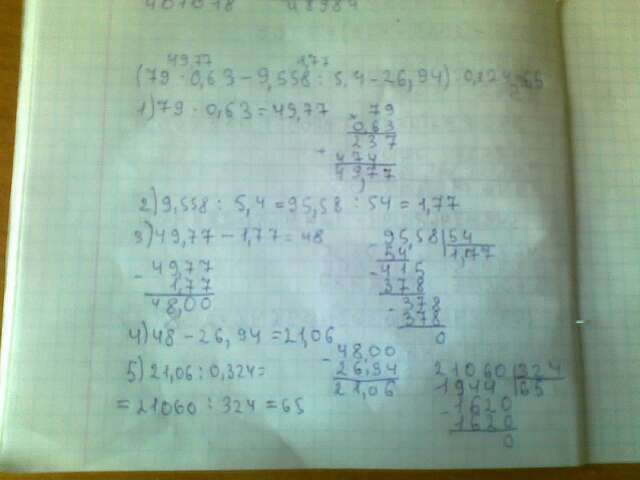 401018 48984
49,77 1,77
(79 · 0,63 - 9,558 : 5,4 - 26,94) : 0,324 = 65
1) 79 · 0,63 = 49,77
× 79
0,63
237
+ 474
49,77
2) 9,558 : 5,4 = 95,58 : 54 = 1,77
3) 49,77 - 1,77 = 48
- 49,77
1,77
48,00
- 95,58 | 54
54 | 1,77
- 415
378
- 378
378
0
4) 48 - 26,94 = 21,06
- 48,00
26,94
21,06
5) 21,06 : 0,324 =
= 21060 : 324 = 65
- 21060 | 324
1944 | 65
- 1620
1620
0